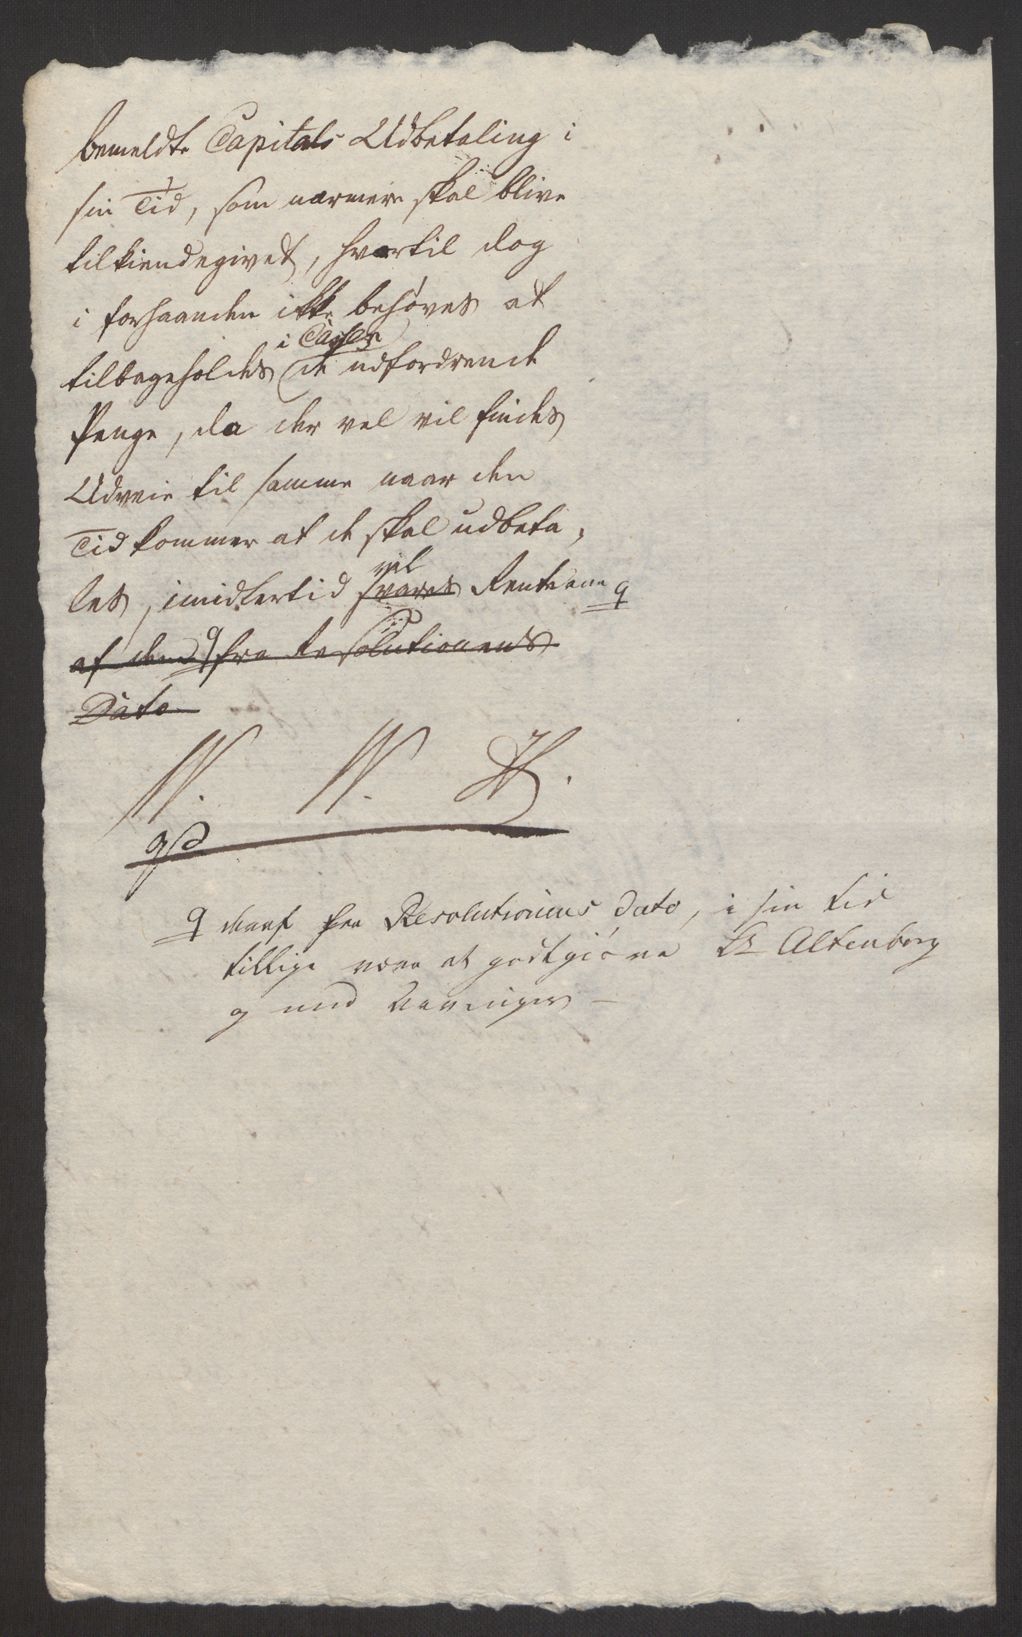 bemeldte Capitals Udbetaling i
sin Tid, som nærmere skal blive
tilkiendegivet, hvortil dog
i forhaanden ikke behøves at
i Cassen
tilbageholdes de udfordrende
Penge, da der vel vil findes
Udveie til samme naar den
Tid kommer at de skal udbeta,
les, imidlertid svares Renterne
vil
af dem fra Resolutionens
Dato
W. W. H.
deraf fra Resolutionens Dato, i sin tid
tillige være at godtgiøre Hr Altenborg
og med Arvinger –